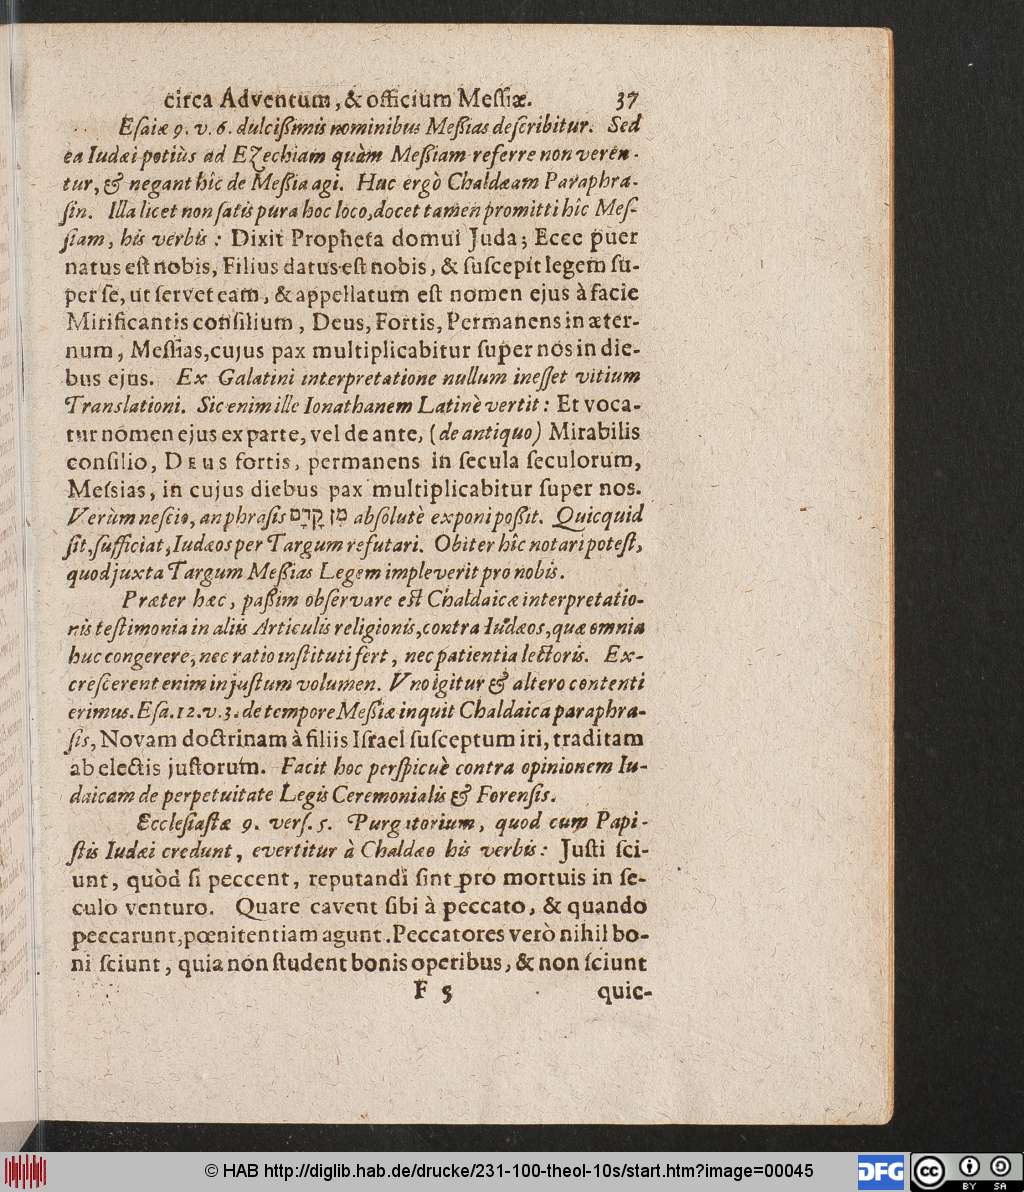 circa Adventum, & officium Meſſiæ. 37
Eſaiæ 9. v. 6. dulcißimis nominibus Meßias deſcribitur. Sed
ea Iudæi potiùs ad EZechiam quàm Meßiam referre non veren-
tur, & negant hîc de Meßia agi. Huc ergò Chaldæam Paraphra-
ſin. Illa licet non ſatis pura hoc loco, docet tamen promitti hîc Meſ-
ſiam, his verbis: Dixit Propheta domui Juda; Ecce puer
natus eſt nobis, Filius datus eſt nobis, & ſuſcepit legem ſu-
per ſe, ut ſervet eam, & appellatum eſt nomen ejus à facie
Mirificantis conſilium, Deus, Fortis, Permanens in æter-
num, Meſſias, cujus pax multiplicabitur ſuper nos in die-
bus ejus. Ex Galatini interpretatione nullum ineſſet vitium
Translationi. Sic enim ille Ionathanem Latinè vertit: Et voca-
tur nomen ejus ex parte, vel de ante, (de antiquo) Mirabilis
conſilio, DEUS fortis, permanens in ſecula ſeculorum,
Meſsias, in cujus diebus pax multiplicabitur ſuper nos.
Verùm neſcio, an phraſis מִן קֳדָם abſolutè exponi poßit. Quicquid
ſit, ſufficiat, Iudæos per Targum refutari. Obiter hîc notari poteſt,
quod juxta Targum Meßias Legem impleverit pro nobis.
Præter hæc, paßim obſervare eſt Chaldaicæ interpretatio-
nis teſtimonia in aliis Articulis religionis, contra Iudæos, quæ omnia
huc congerere, nec ratio inſtituti fert, nec patientia lectoris. Ex-
creſcerent enim in juſtum volumen. Uno igitur & altero contenti
erimus. Eſa. 12. v. 3. de tempore Meßiæ inquit Chaldaica paraphra-
ſis, Novam doctrinam à filiis Iſrael ſuſceptum iri, traditam
ab electis juſtorum. Facit hoc perſpicuè contra opinionem Iu-
daicam de perpetuitate Legis Ceremonialis & Forenſis.
Eccleſiaſtæ 9. verſ. 5. Purgatorium, quod cum Papi-
ſtis Iudæi credunt, evertitur à Chaldæo his verbis: Juſti ſci-
unt, quòd ſi peccent, reputandi ſint pro mortuis in ſe-
culo venturo. Quare cavent ſibi à peccato, & quando
peccarunt, pœnitentiam agunt. Peccatores verò nihil bo-
ni ſciunt, quia non ſtudent bonis operibus, & non ſciunt
F 5 quic-
© HAB http://diglib.hab.de/drucke/231-100-theol-10s/start.htm?image=00045
DFG
cc BY SA